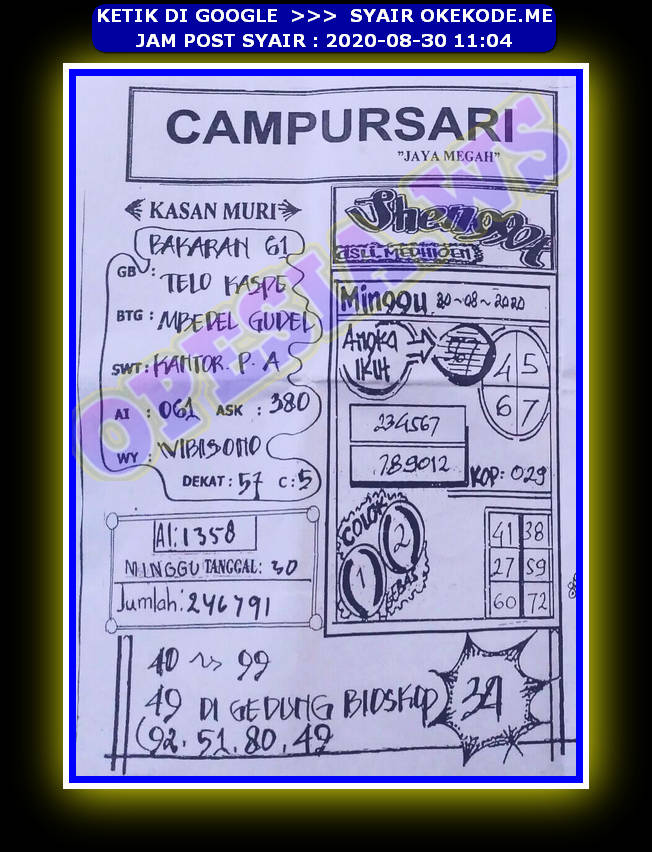 KETIK DI GOOGLE >>> SYAIR OKEKODE.ME
JAM POST SYAIR : 2020-08-30 11:04
CAMPURSARI
"JAYA MEGAH"
KASAN MURI
BAKARAN 61
GB : TELO KASPE
BTG : MBEDEL GUDEL
SWT : KANTOR. P. A
AI : 061 ASK : 380
WY : WIBISONO
DEKAT : 57 C : 5
AI : 1358
MINGGU TANGGAL : 30
Jumlah : 246791
ASLI
Minggu 30~08~2020
Angka
IKUT
45
67
234567
789012
KOP: 029
COLOK
1 2
BEBAS
41 38
27 59
60 72
40 ~> 99
49 DI GEDUNG BIOSKOP
(92. 51. 80. 49
OPESIAWS